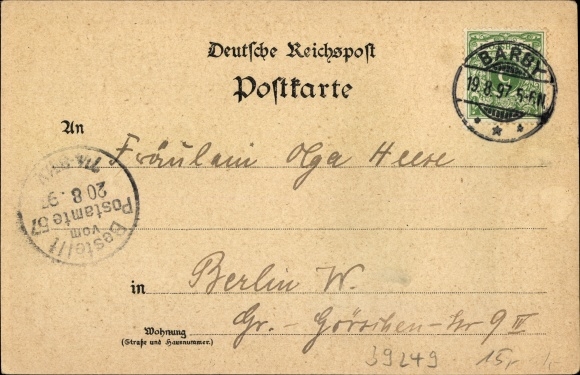 Deutsche Reichspost
Postkarte
BARBY
19.8.97.5-6N.
An Fräulein Olga Heese
Bestellt
vom
Postamte 57
20.8.97
in Berlin W.
Wohnung
(Straße und Hausnummer.)
Gr. - Görschen-Str 9 IV
39249 15,